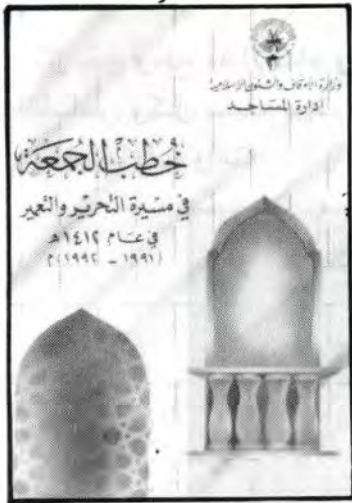 وزارة الأوقاف والشئون الإسلامية
إدارة المساجد
خطب الجمعة
في مسيرة التحرير والتعمير
في عام ١٤١٢ هـ
(١٩٩١ - ١٩٩٢) م